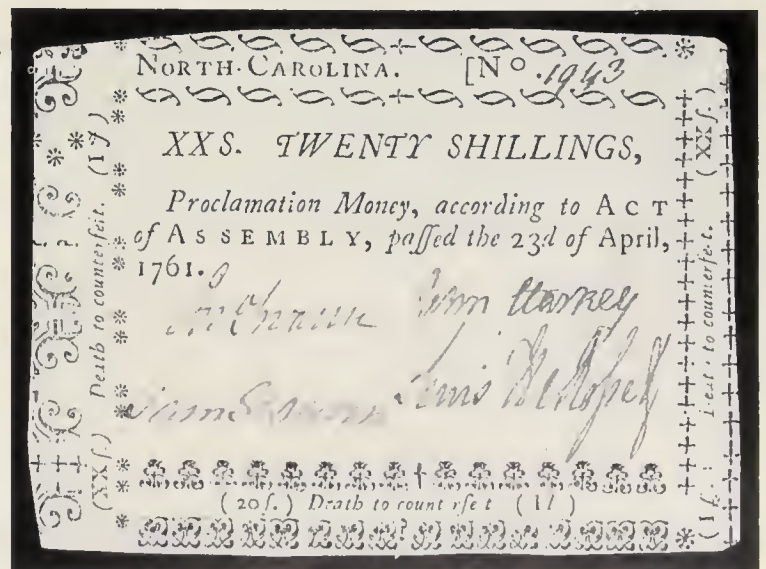 NORTH·CAROLINA. [No. 1943
XXS. TWENTY SHILLINGS,
Proclamation Money, according to ACT
of ASSEMBLY, paſſed the 23d of April,
1761.
John Starkey
Lewis
(20ſ.) Death to count rfe t (1l )
(XXſ.) Death to counterfeit. (1ſ)
(1ſ. Deat to counterfe t. (XXſ.)